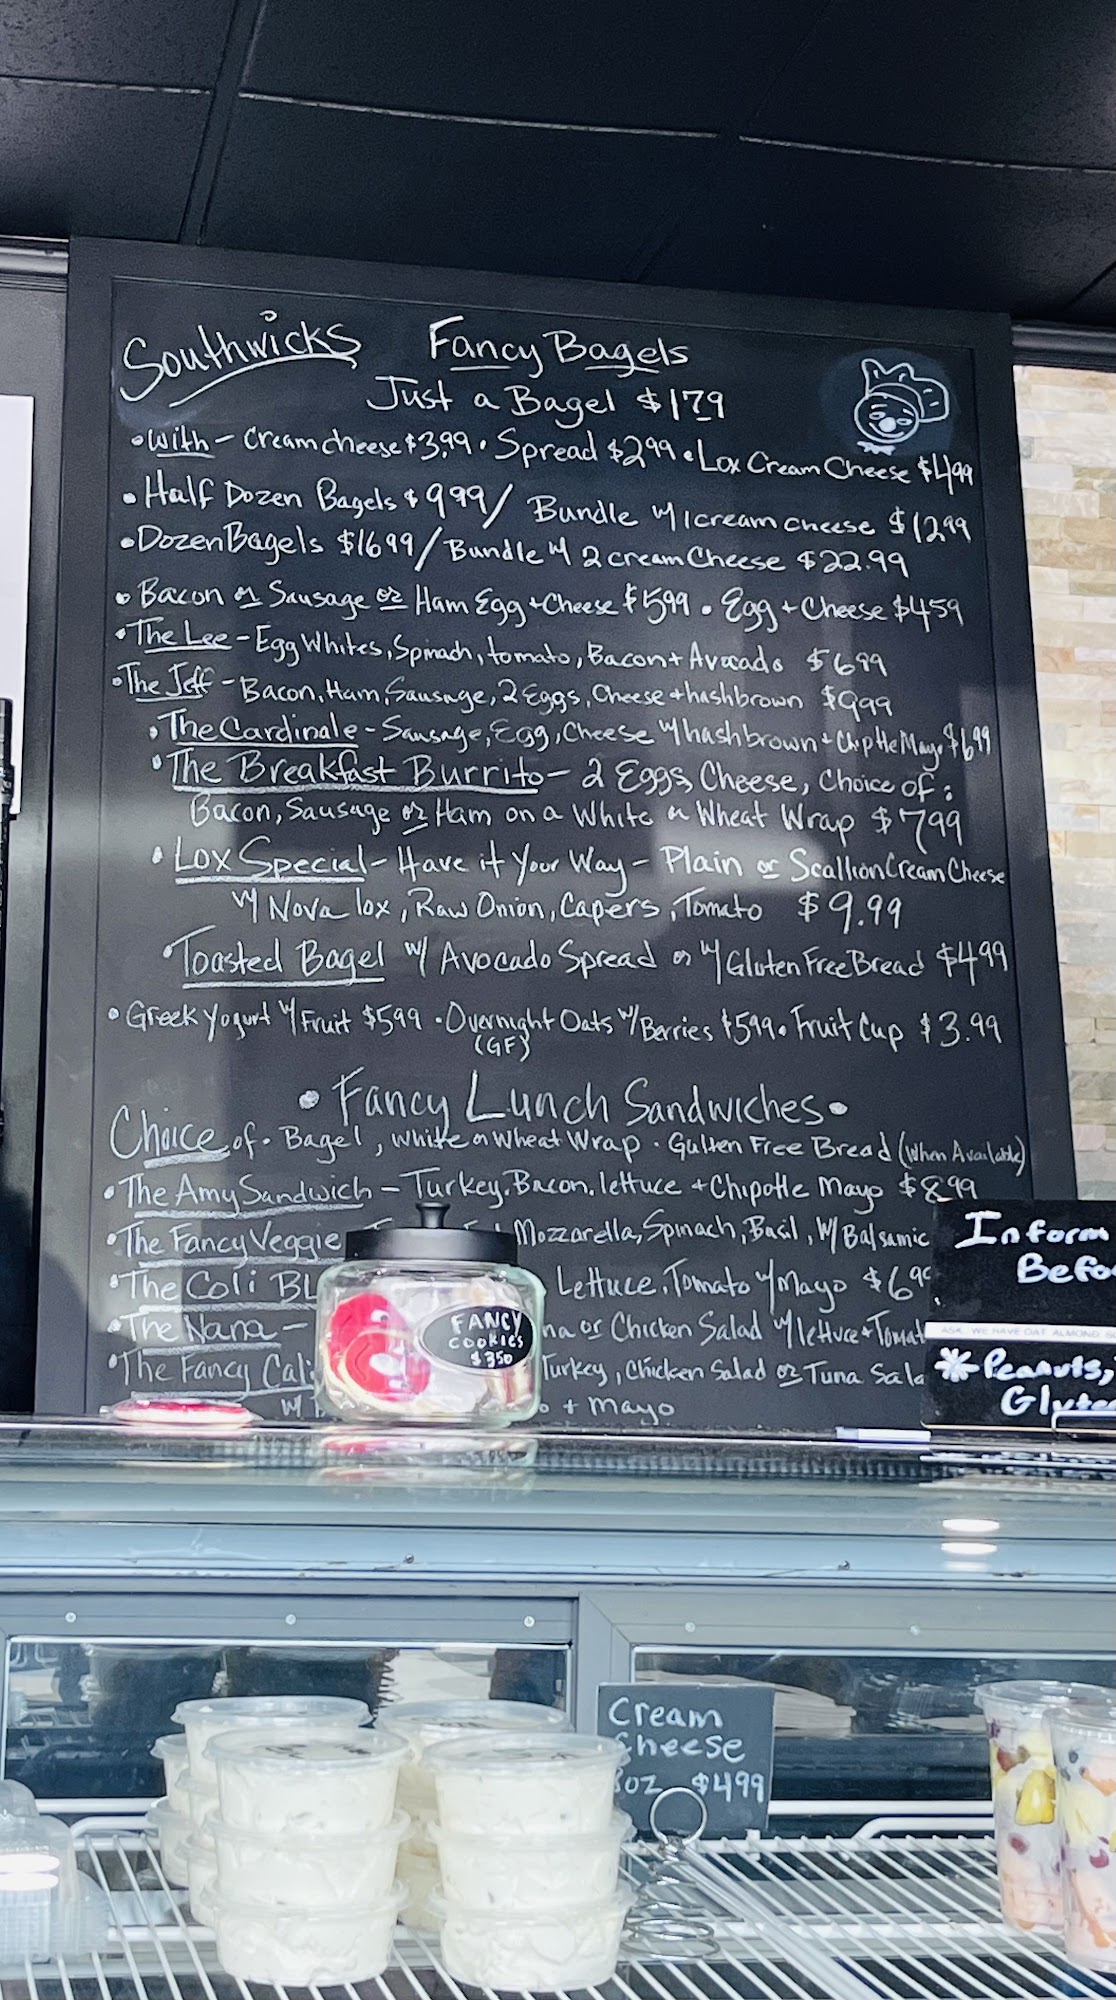 Southwicks Fancy Bagels
Just a Bagel $1.79
• With - Cream cheese $3.99 • Spread $2.99 • Lox Cream Cheese $4.99
• Half Dozen Bagels $9.99 / Bundle w/ 1 cream cheese $12.99
• Dozen Bagels $16.99 / Bundle w/ 2 cream Cheese $22.99
• Bacon or Sausage or Ham Egg + Cheese $5.99 • Egg + Cheese $4.59
• The Lee - Egg Whites, Spinach, tomato, Bacon + Avocado $6.99
• The Jeff - Bacon, Ham, Sausage, 2 Eggs, Cheese + hashbrown $9.99
• The Cardinale - Sausage, Egg, Cheese w/ hashbrown + Chiptle Mayo $6.99
• The Breakfast Burrito - 2 Eggs, Cheese, Choice of:
Bacon, Sausage or Ham on a White or Wheat Wrap $7.99
• Lox Special - Have it Your Way - Plain or Scallion Cream Cheese
w/ Nova lox, Raw Onion, Capers, Tomato $9.99
• Toasted Bagel w/ Avocado Spread or w/ Gluten Free Bread $4.99
• Greek Yogurt w/ Fruit $5.99 • Overnight Oats w/ Berries $5.99 • Fruit Cup $3.99
(GF)
• Fancy Lunch Sandwiches •
Choice of • Bagel, white or Wheat Wrap • Gulten Free Bread (When Available)
• The Amy Sandwich - Turkey, Bacon, lettuce + Chipotle Mayo $8.99
• The Fancy Veggie Mozzarella, Spinach, Basil, w/ Balsamic
• The Coli BL Lettuce, Tomato w/ Mayo $6.99
• The Nana - na or Chicken Salad w/ lettuce + Tomat
• The Fancy Cali Turkey, Chicken Salad or Tuna Sala
w/ o + mayo
FANCY
COOKIES
$3.50
Inform
Befo
ASK. WE HAVE OAT ALMOND
* Peanuts,
Glute
Cream
Cheese
8oz $4.99